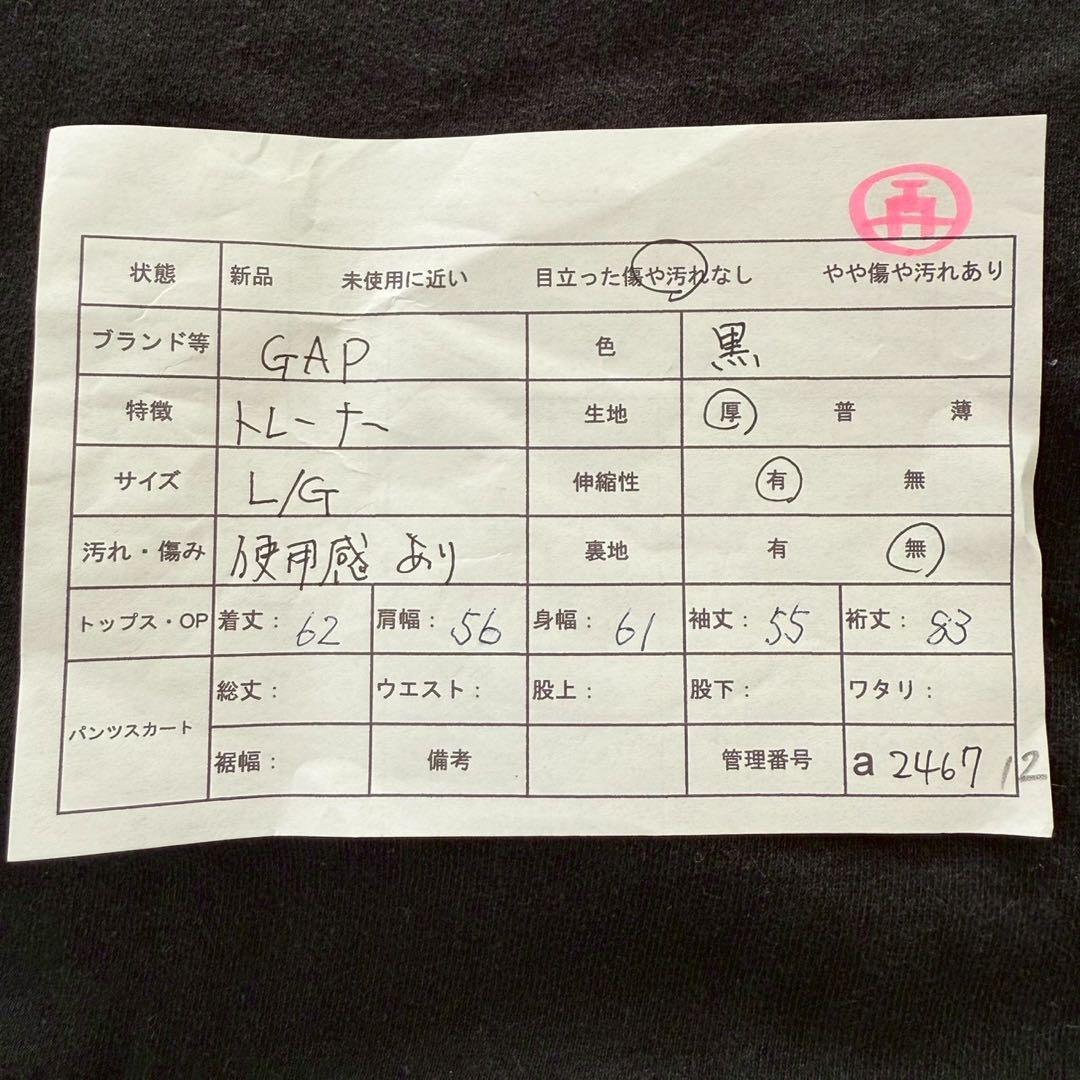 再
状態 新品 未使用に近い 目立った傷や汚れなし やや傷や汚れあり
ブランド等 GAP 色 黒
特徴 トレーナー 生地 厚 普 薄
サイズ L/G 伸縮性 有 無
汚れ・傷み 使用感 あり 裏地 有 無
トップス・OP 着丈: 62 肩幅: 56 身幅: 61 袖丈: 55 裄丈: 83
パンツスカート 総丈: ウエスト: 股上: 股下: ワタリ:
裾幅: 備考 管理番号 a 2467 12